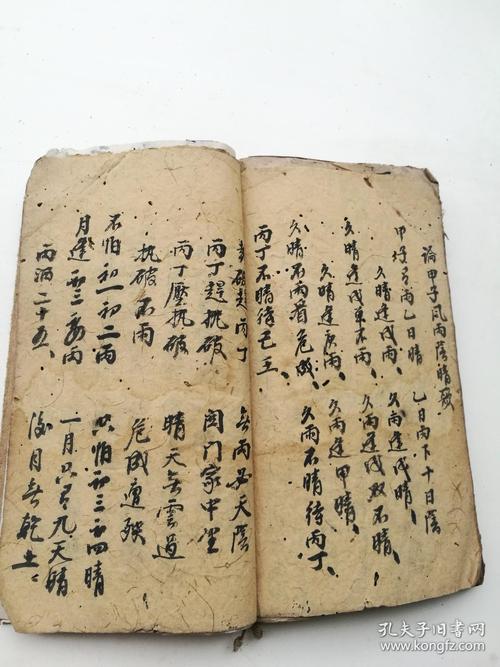 論甲子風雨蔭晴歌
甲有雨乙日晴 乙日雨下十日蔭
久晴逢戊雨、 久雨逢戊晴、
久晴逢戊不雨、 久雨逢戊双不晴、
久晴逢庚雨、 久雨逢甲晴、
久晴不雨看危成、 久雨不晴待丙丁、
丙丁不晴待己壬、
破赶丙丁 無雨必天蔭
丙丁趕執破 閉門家中坐
丙丁壓執破 晴天無雲過
执破不雨 危成遭殃
不怕初一初二雨 只怕初三初四晴
月逢初三雨 一月只有九天晴
雨洒二十五、 後月無乾土
孔夫子旧书网
www.kongfz.com